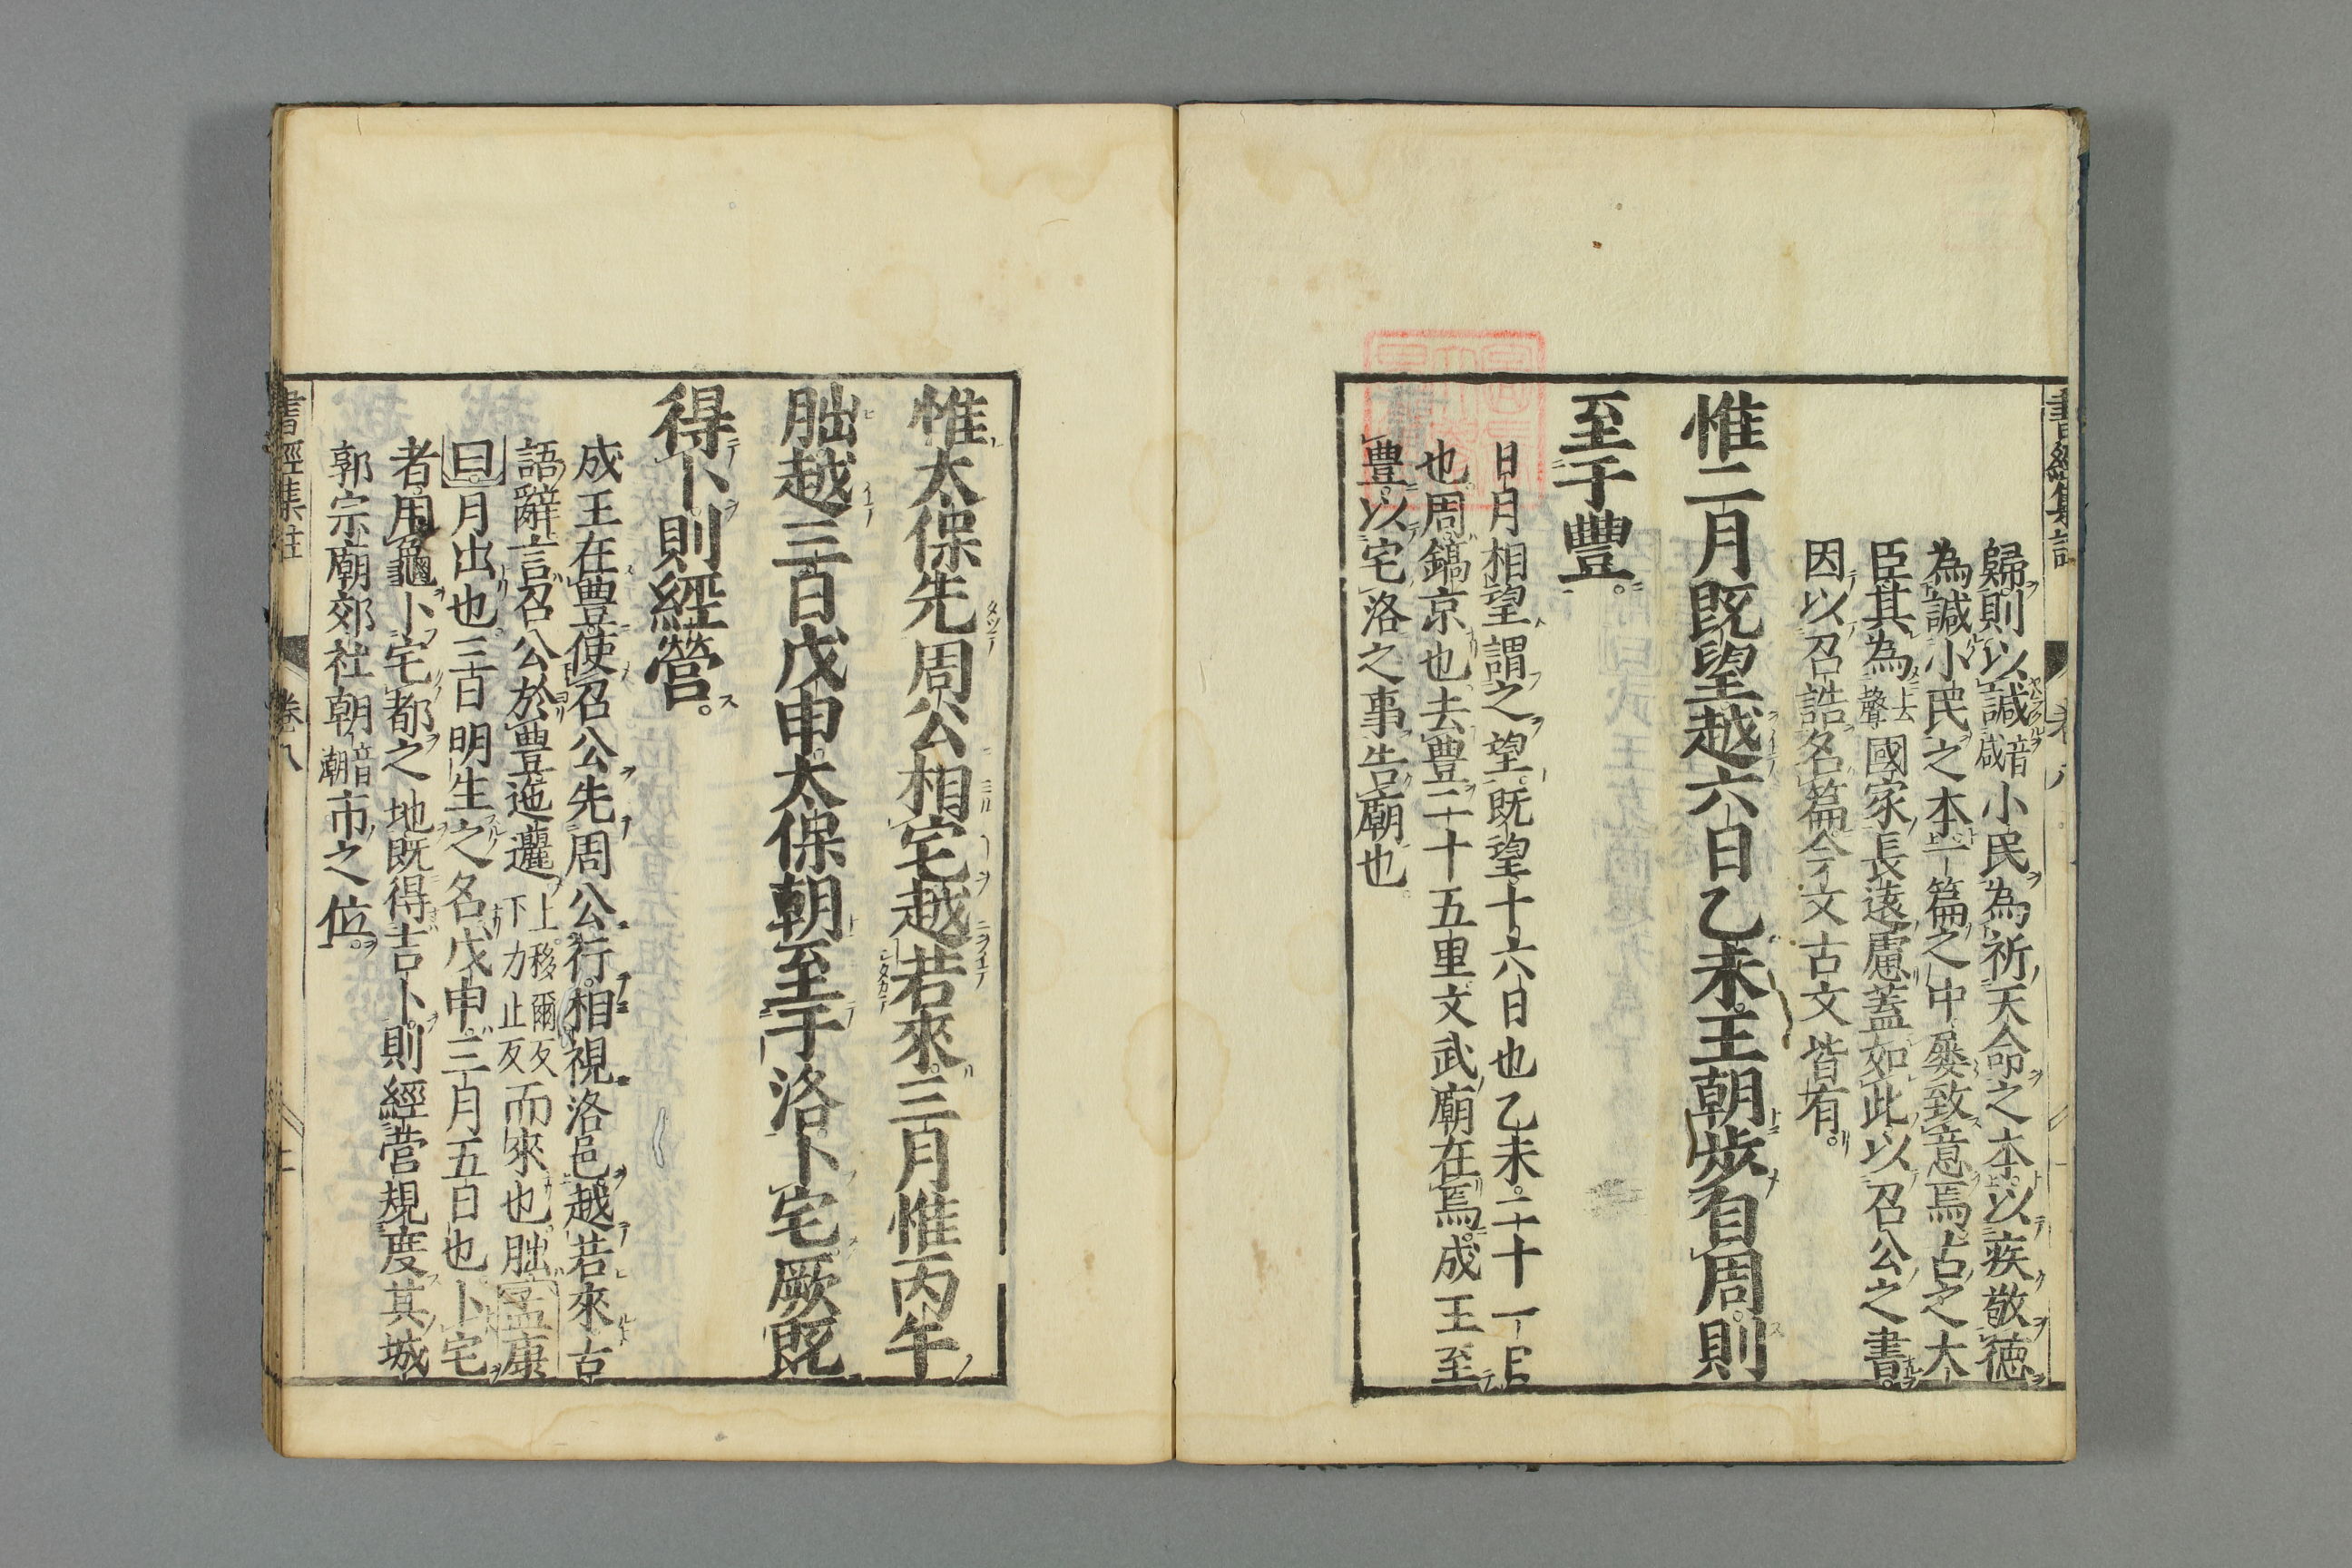 歸則以諴音咸小民為祈天命之本以疾敬德
為諴小民之本一篇之中屡致意焉古之大
臣其為去聲國家長遠慮蓋如此以召公之書
因以召誥名篇今文古文皆有
惟二月既望越六日乙未王朝步自周則
至于豐
日月相望謂之望既望十六日也乙未二十一日
也周鎬京也去豊二十五里文武廟在焉成王至
豊以宅洛之事告廟也
惟太保先周公相宅越若來三月惟丙午
朏越三日戊申太保朝至于洛卜宅厥既
得卜則經營
成王在豊使召公先周公行相視洛邑越若來古
語辭言召公於豊迤邐上移爾反下力止反而來也朏孟康
曰月出也三日明生之名戊申三月五日也卜宅
者用龜卜宅都之地既得吉卜則經营規度其城
郭宗廟郊社朝音潮市之位
書經集註
卷八